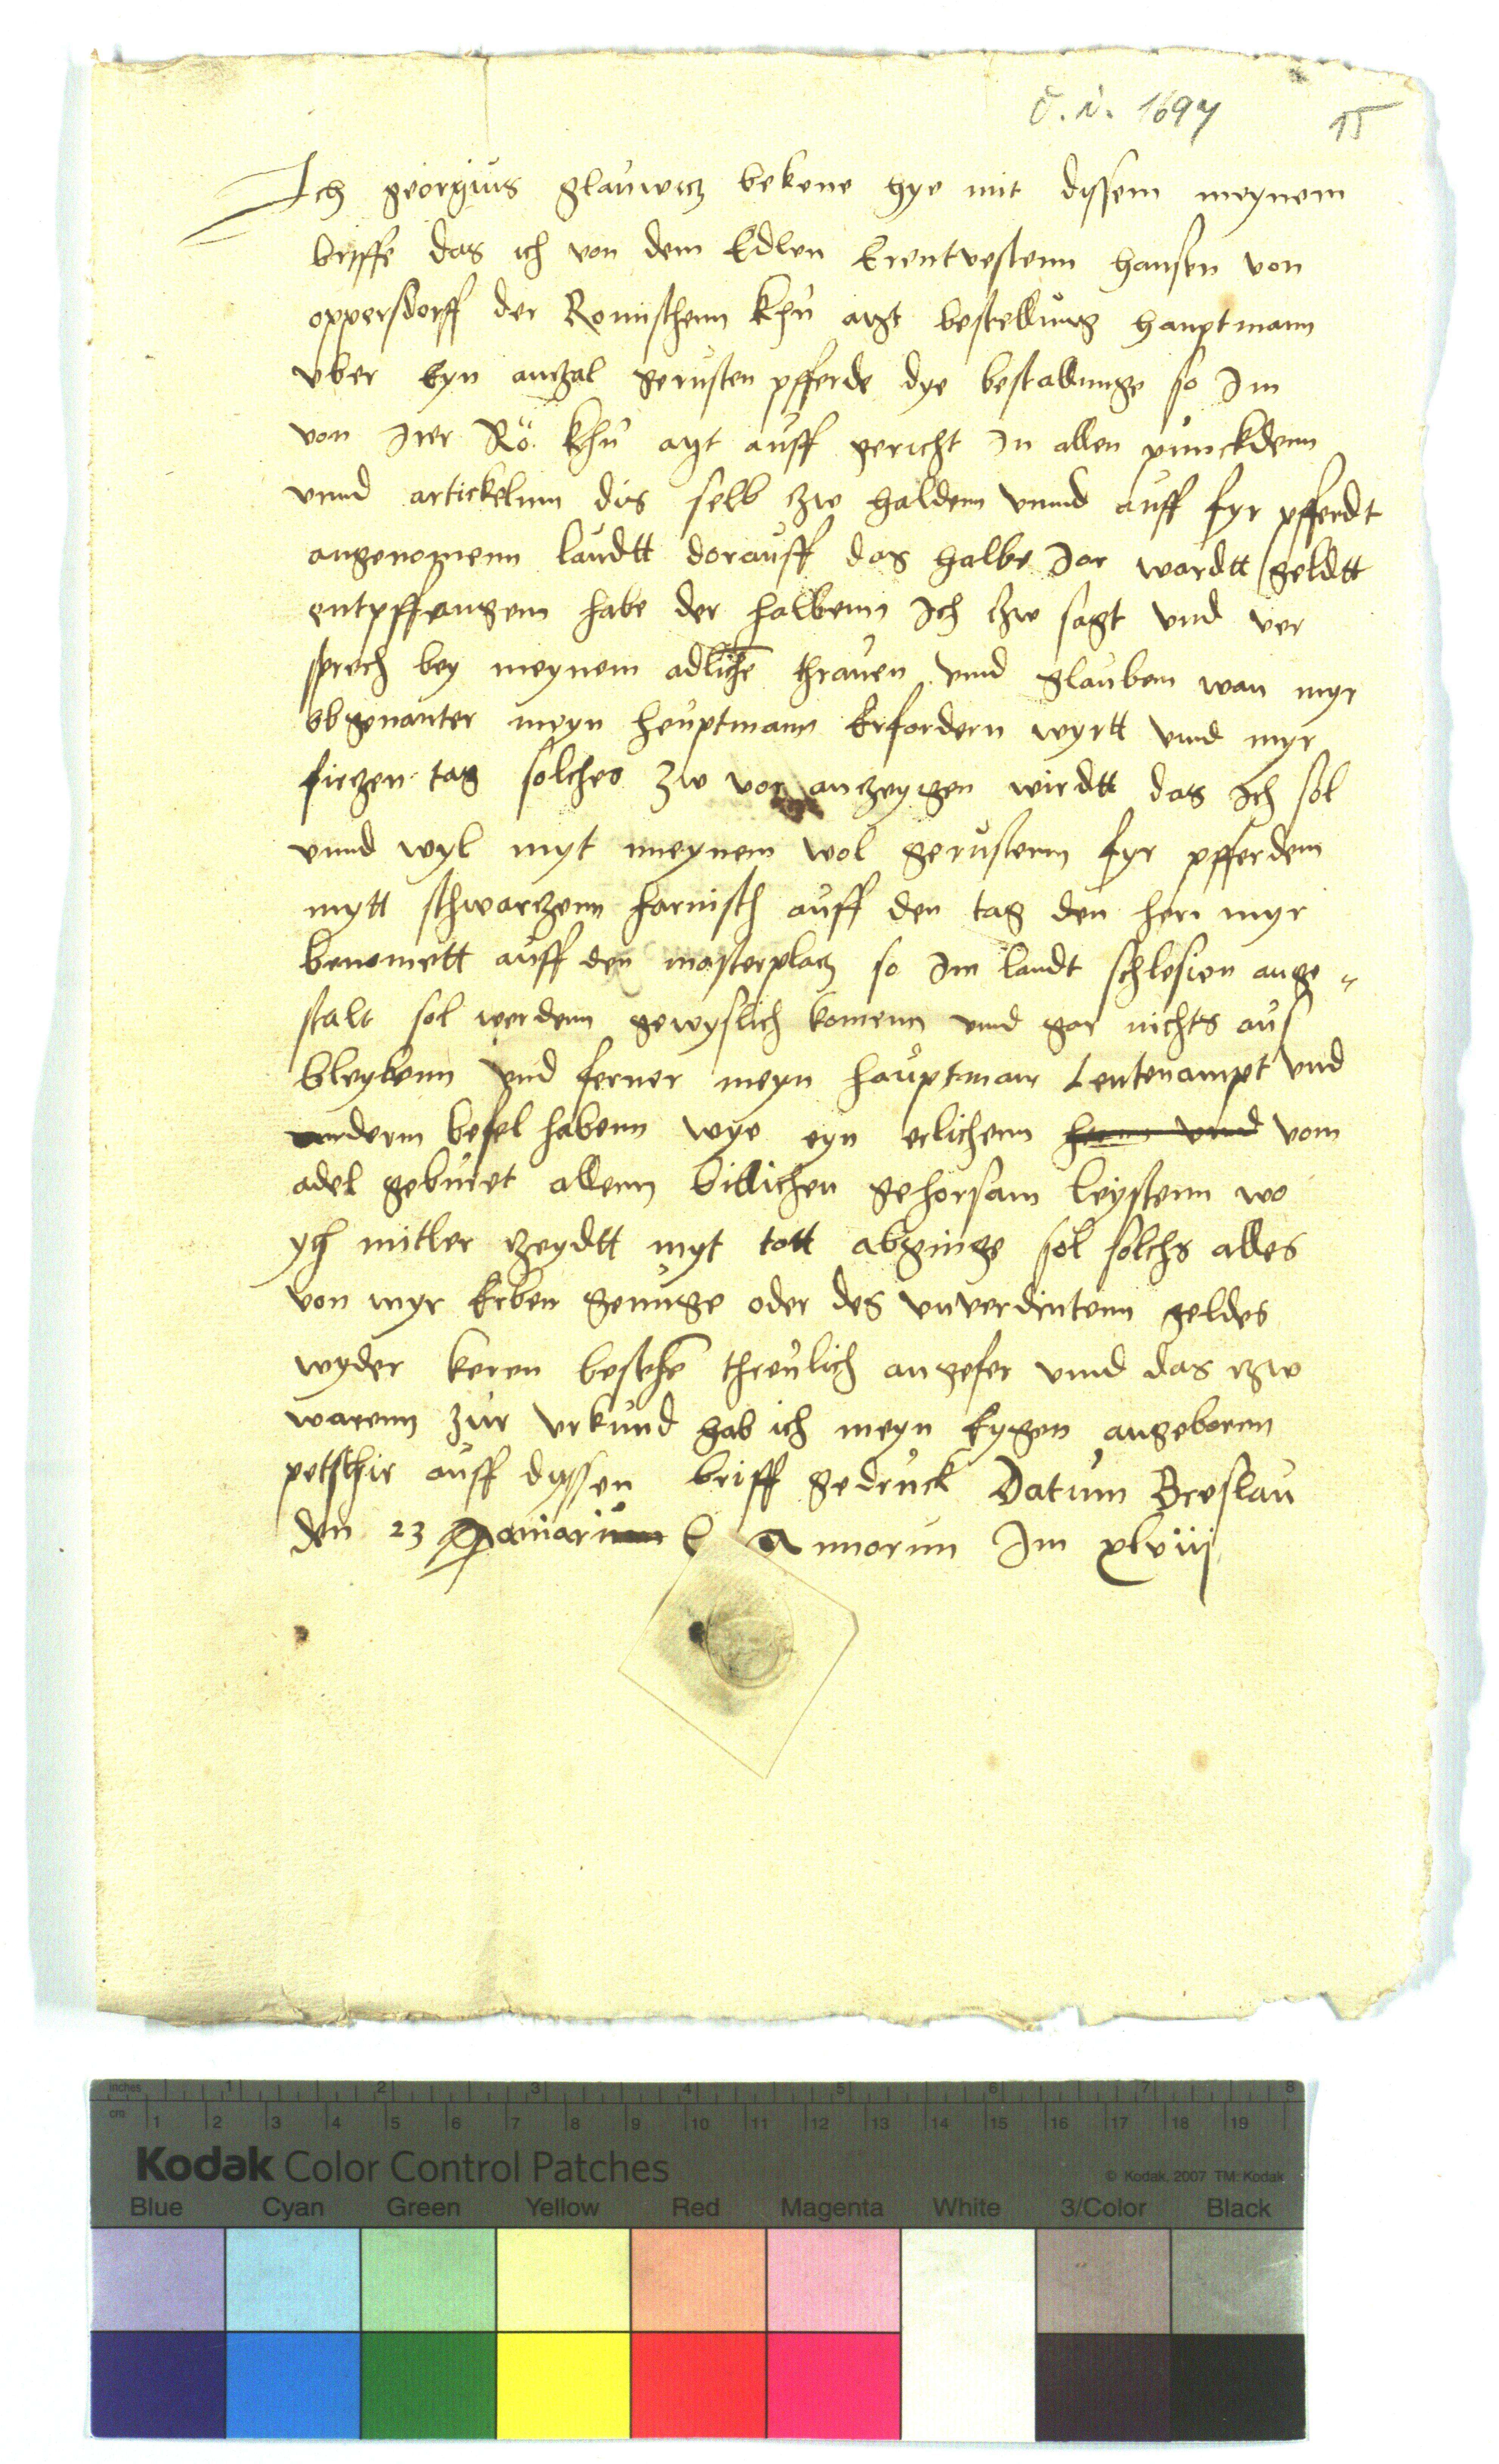 15
Ich georgius glauwicz bekene hye mit dyssem meynem
briffe das ich von dem Edlen Erentvestenn hansen von
oppersdorff der Romischenn khů bestellung hauptmann
vber Eyn anczal gerusten pfferde dye bestallunge so Im
von Irer Rö. khů auff gericht In allen punckdenn
vnnd artickelnn dis selb zw haldenn vnnd auff fyr pfferdt
angenomenn laudtt dorauff das halbe Jar wardtt geldtt
entpffangenn habe der halbenn Ich zw sagt vnd ver
sprech bey meynem adliche thrauen vnnd glauben wan myr
obgenanter meyn heuptmann Erfordern wyrtt vnnd myr
firczen tag solches zw vor anczeygen wirdtt das Ich sol
vnnd wyl myt meynem wol gerustenn fyr pfferdenn
mytt schwarczenn harnisch auff den tag den her myr
benomett auff den mosterplacz so Im landt schlesien ange=
stalt sol werdenn gewyslich komenn vnnd gar nichts aus
bleybenn vnd ferner meyn hauptman Leutenampt vnd
anderm befel habenn wye eyn erlichenn vom
adel geburet allenn billichen gehorsam leystenn wo
ych mitler czeydtt myt tott abginge sol solchs alles
von myr Erben genuge oder des vnverdintenn geldes
wyder keren bestehe threulich angefer vnnd das czw
warenn zur vrkund hab ich meyn Eygen angeboren
petschir auff dyssen briff gedruck Datum Breslau
den 23 Annorum Im xlviij
Kodak Color Control Patches
© Kodak, 2007 TM: Kodak
inches 1 2 3 4 5 6 7 8
cm 1 2 3 4 5 6 7 8 9 10 11 12 13 14 15 16 17 18 19
Blue Cyan Green Yellow Red Magenta White 3/Color Black